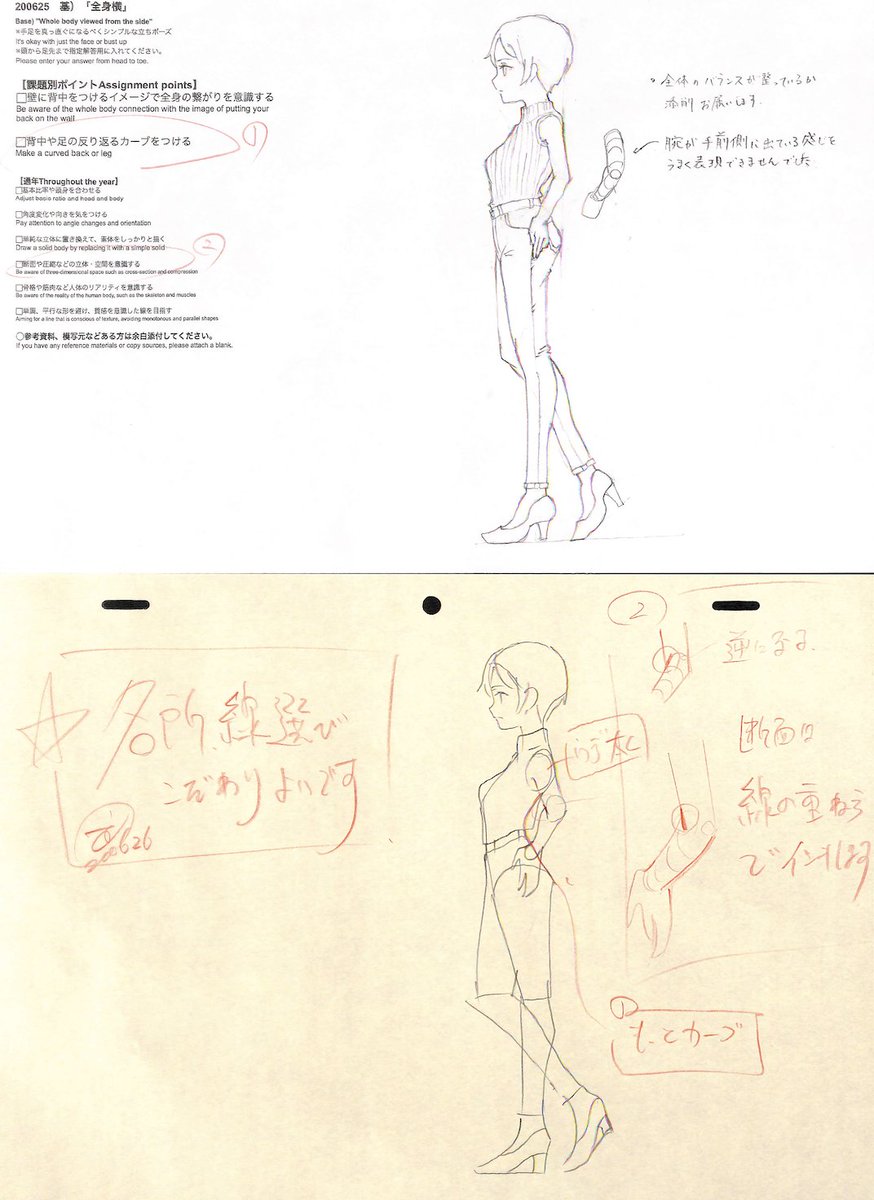 200625 基)「全身横」
Base) "Whole body viewed from the side"
※手足を真っ直ぐになるべくシンプルな立ちポーズ
It's okay with just the face or bust up
※頭から足先まで指定解答用に入れてください。
Please enter your answer from head to toe.
【課題別ポイントAssignment points】
□壁に背中をつけるイメージで全身の繋がりを意識する
Be aware of the whole body connection with the image of putting your
back on the wall
□背中や足の反り返るカーブをつける
Make a curved back or leg
①
【通年Throughout the year】
□基本比率や頭身を合わせる
Adjust basic ratio and head and body
□角度変化や向きを気をつける
Pay attention to angle changes and orientation
□単純な立体に置き換えて、素体をしっかりと描く
Draw a solid body by replacing it with a simple solid
②
□断面や圧縮などの立体・空間を意識する
Be aware of three-dimensional space such as cross-section and compression
□骨格や筋肉など人体のリアリティを意識する
Be aware of the reality of the human body, such as the skeleton and muscles
□単調、平行な形を避け、質感を意識した線を目指す
Aiming for a line that is conscious of texture, avoiding monotonous and parallel shapes
○参考資料、模写元などある方は余白添付してください。
If you have any reference materials or copy sources, please attach a blank.
全体のバランスが整っているか
添削お願いします。
腕が手前側に出ている感じを
うまく表現できませんでした
名所、線選び
こだわりよいです
200626
②
逆になる
断面は
線の重ねる
①
もっとカーブ